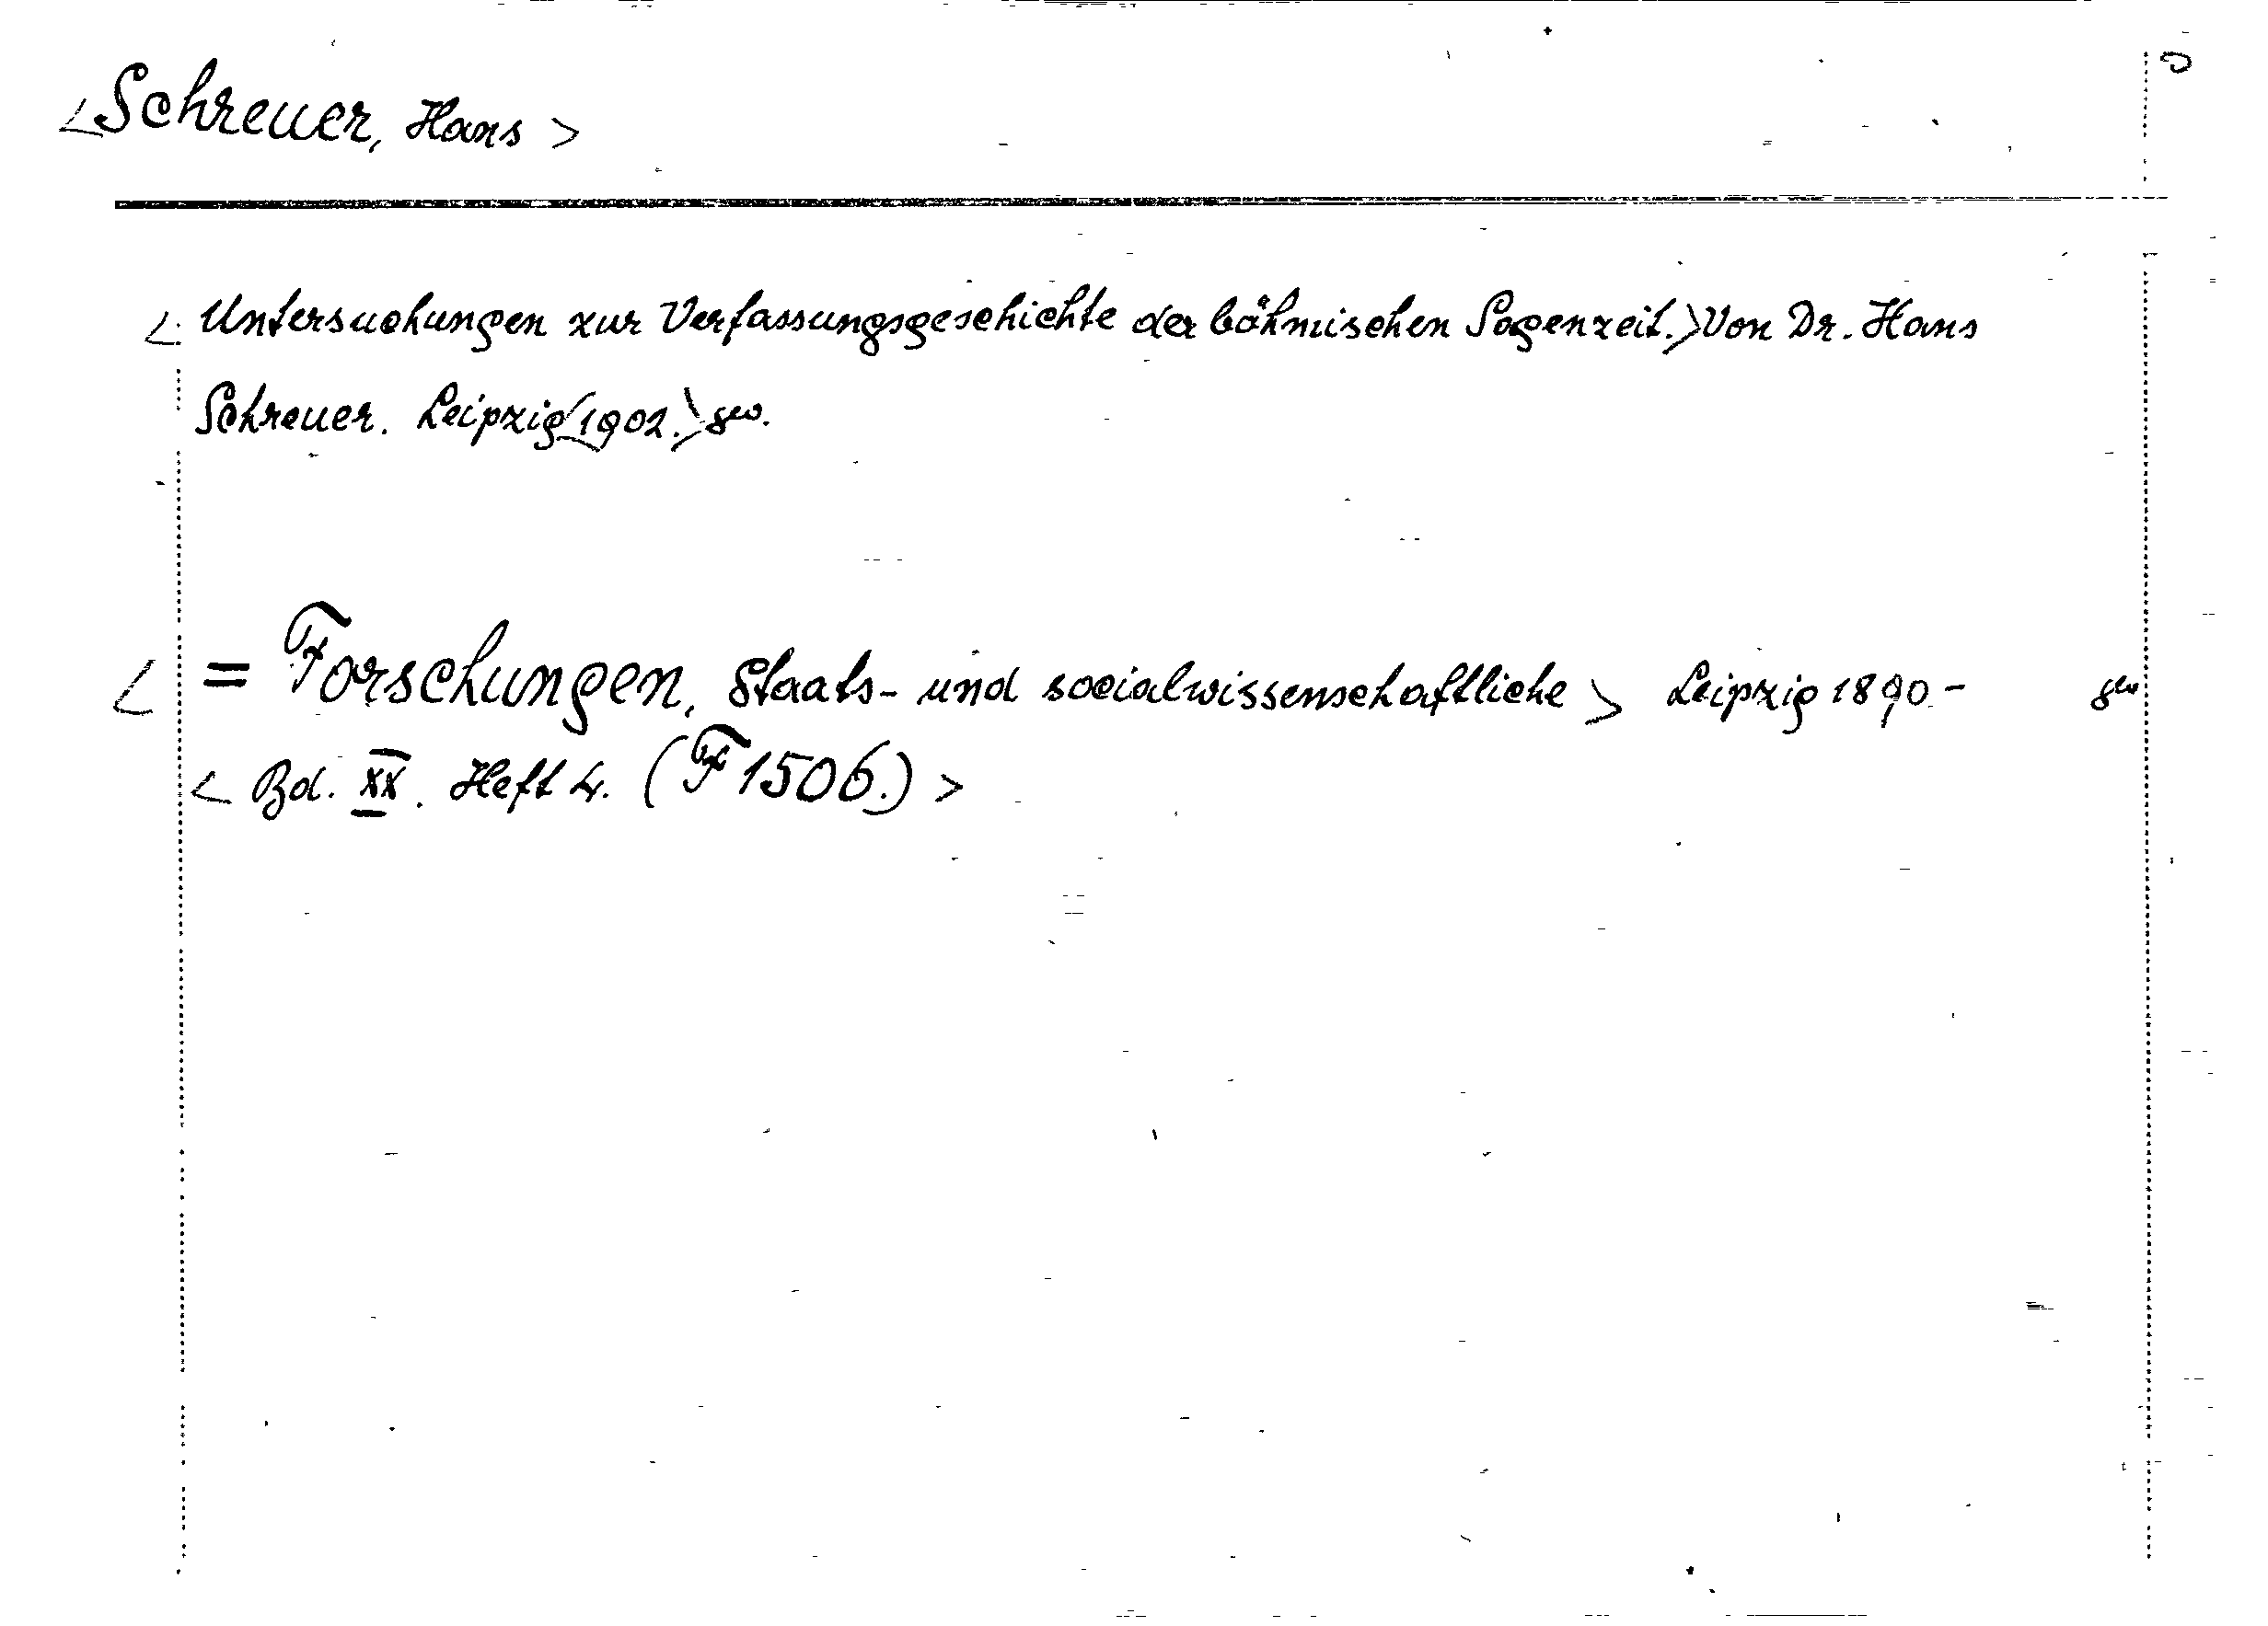 <Schreuer, Hans>
<Untersuchungen zur Verfassungsgeschichte der böhmischen Sagenzeit.> Von Dr. Hans
Schreuer. Leipzig <1902.> 8vo.
<= Forschungen, Staats- und socialwissenschaftliche> Leipzig 1890.- 8vo
<Bd. XX. Heft 4. (F 1506.)>